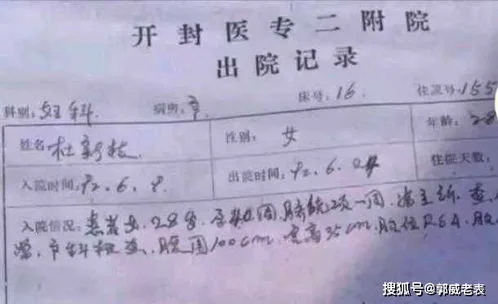 开封医专二附院
出院记录
科别：妇科 病房： 床号：16 住院号：155
姓名 杜新枝 性别：女 年龄：28
入院时间：92.6.8 出院时间：92.6.24 住院天数：
入院情况：患者女，28岁，
产科检查，腹围100cm，宫高35cm，胎位RSA，胎
搜狐号@郭威老表